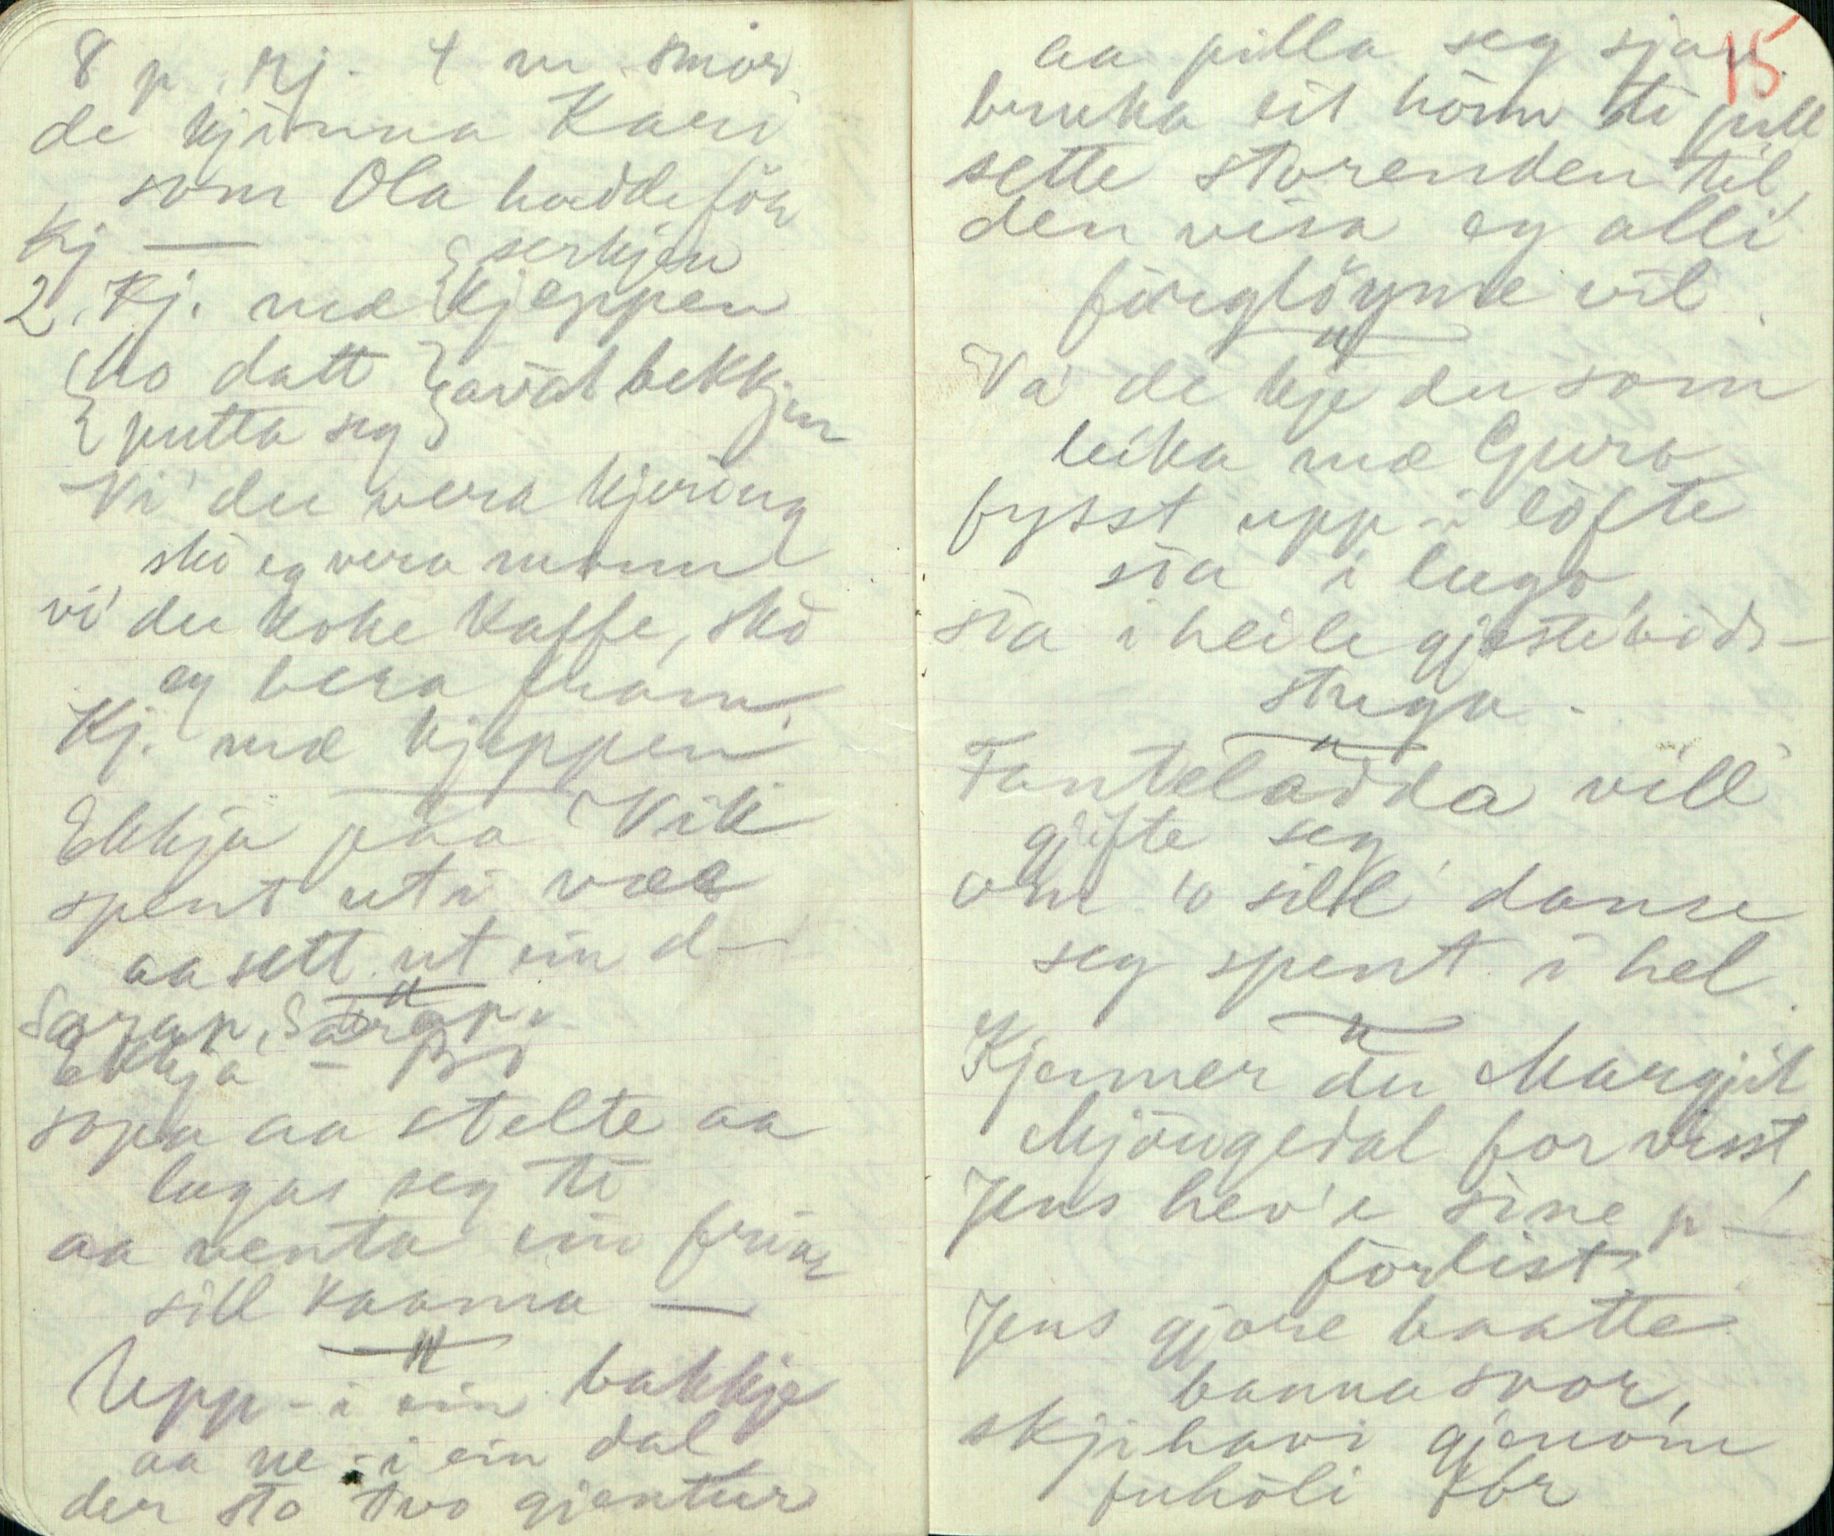 8 p. rj. 4 m smör
de kjænna Kari
som Ola hadde för
Kj —
2. Kj. mæ { serkjen
kjeppen
{ ho datt } avát bekkjen
{ putta seg }
Vi' du vera kjering
sko eg vera mann
vi' du koke kaffe, sko
eg bera fram.
Kj. mæ kjeppen
Ekkja paa Vik
spent uti væe
aa sett ut ein d—
"
Sara p. Sara p.
Ekkja —
sopa aa stelte aa
lagas seg te
aa venta ein friar
sill kaama —
"
Upp-i ein bakkje
aa ne-i ein dal
der sto two gjentur
15
aa pilla seg sjav.
bruka eit hörn te pill
sette storenden til,
den visa eg alli
förglöyme vil.
"
Va de kje du som
leika mæ Guro
fysst upp-i löfte
sia i lugo,
sia i heile gjesteböds-
stugu.
"
Fanteladda vill
gjifte seg
om 'o sill danse
seg spent i hel.
"
Kjenner du Margjit
Mjöngedal for visst,
Jens hev'e sine p—
forlist
Jens gjore baatte
banna svor,
skjihavi gjenom
fuhöli för